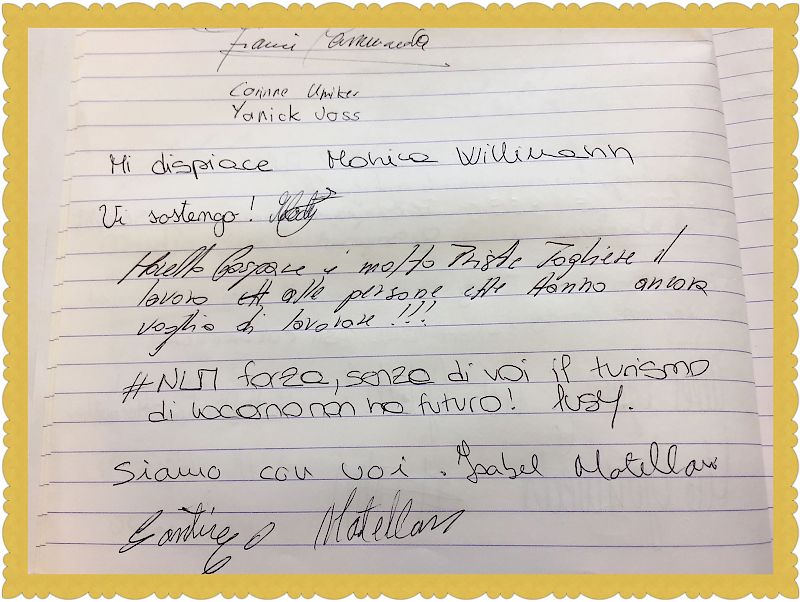 Corinne Umiker
Yanick Voss
Mi dispiace Monica Willimann
Vi sostengo!
Gaspare è molto Triste Togliere il
lavoro alle persone che Hanno ancora
voglia di lavorare!!!
#NLM forza, senza di voi il turismo
di Locarno non ha futuro! Pusy.
Siamo con voi. Isabel Matellan
Santiago Matellan